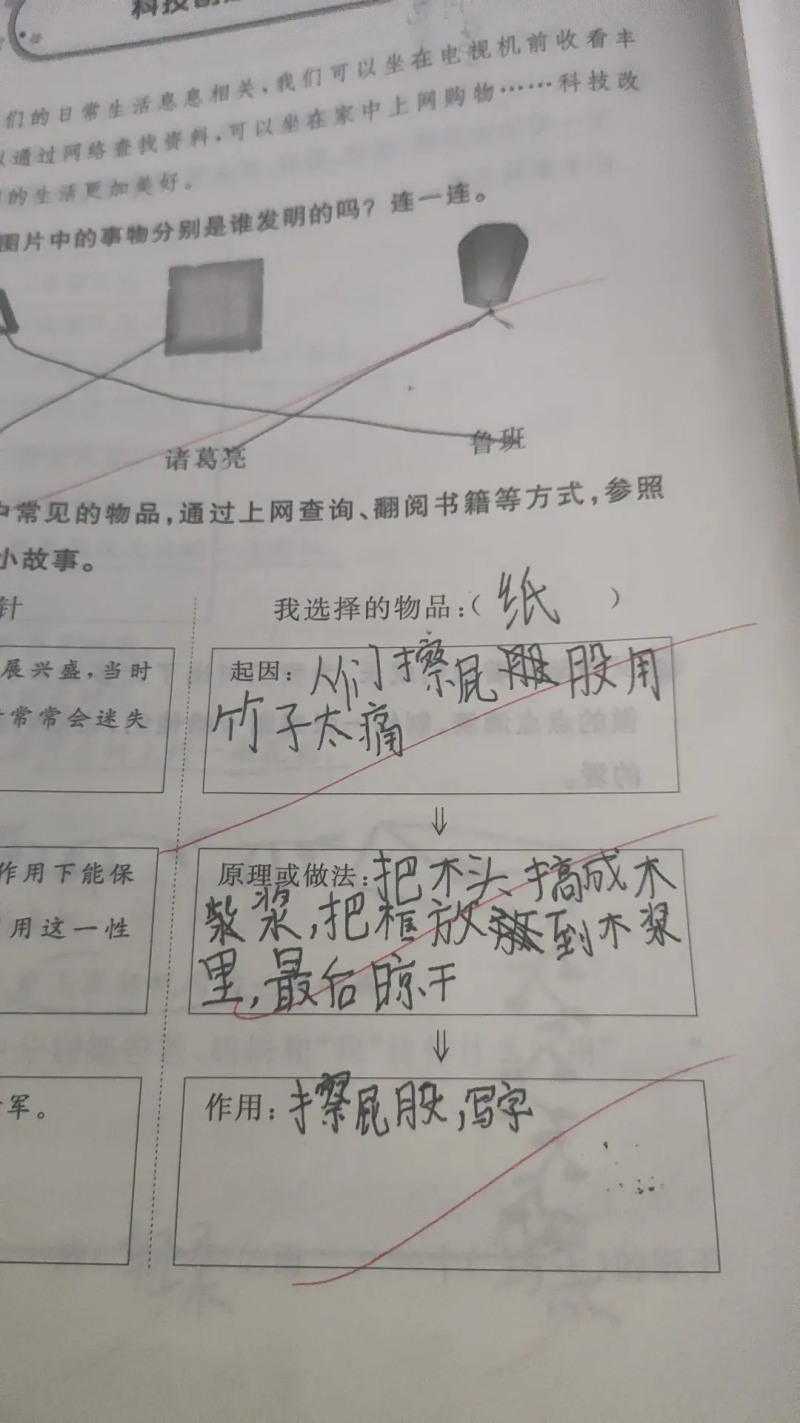 科技创
们的日常生活息息相关,我们可以坐在电视机前收看丰
以通过网络查找资料,可以坐在家中上网购物……科技改
的生活更加美好。
图片中的事物分别是谁发明的吗?连一连。
诸葛亮 鲁班
中常见的物品,通过上网查询、翻阅书籍等方式,参照
小故事。
针
我选择的物品:(纸)
展兴盛,当时
常常会迷失
起因:人们擦屁股用
竹子太痛
作用下能保
用这一性
原理或做法:把木头搞成木
浆,把框放到木浆
里,最后晾干
军。
作用:擦屁股,写字